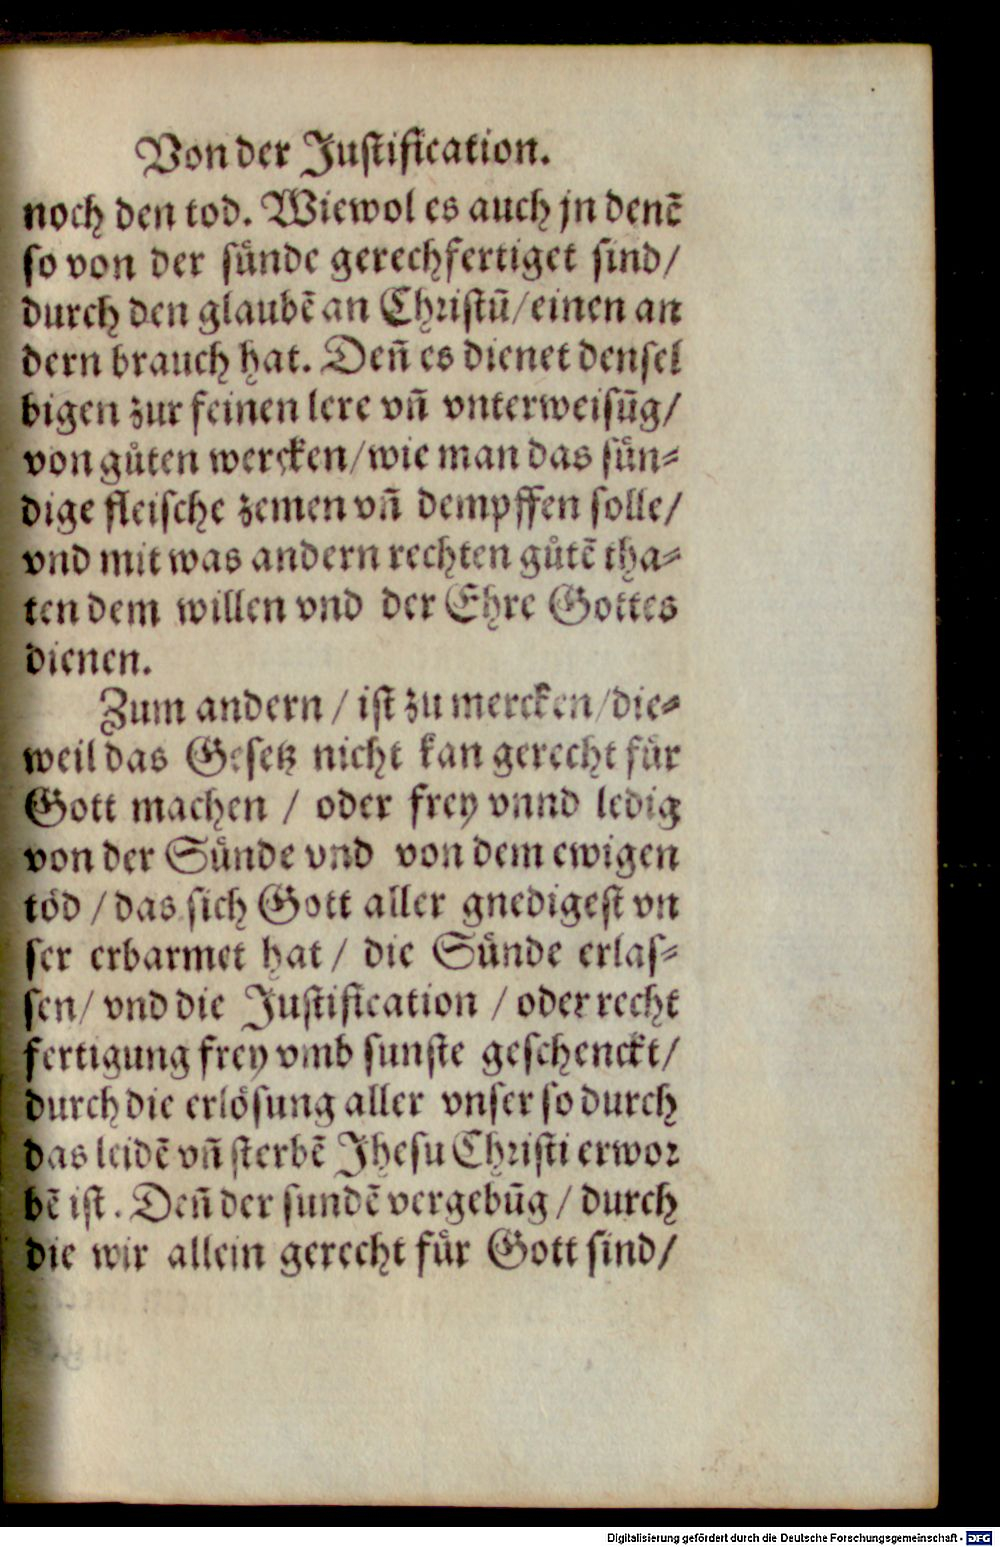 Von der Justification.
noch den tod. Wiewol es auch jn denē
so von der sünde gerechfertiget sind/
durch den glaubē an Christū/einen an
dern brauch hat. Deñ es dienet densel
bigen zur feinen lere vñ vnterweisūg/
von gůten wercken/wie man das sün⸗
dige fleische zemen vñ dempffen solle/
vnd mit was andern rechten gůtē tha⸗
ten dem willen vnd der Ehre Gottes
dienen.
Zum andern / ist zu mercken/die⸗
weil das Gesetz nicht kan gerecht für
Gott machen / oder frey vnnd ledig
von der Sünde vnd von dem ewigen
töd / das sich Gott aller gnedigest vn
ser erbarmet hat / die Sünde erlas⸗
sen/ vnd die Justification / oder recht
fertigung frey vmb sunste geschenckt/
durch die erlösung aller vnser so durch
das leidē vñ sterbē Jhesu Christi erwor
bē ist. Deñ der sundē vergebūg / durch
die wir allein gerecht für Gott sind/
Digitalisierung gefördert durch die Deutsche Forschungsgemeinschaft - DFG